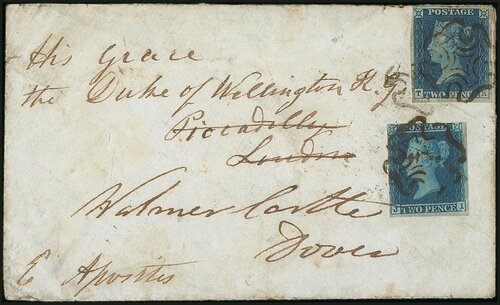 POSTAGE
TWO PENCE
His Grace
the Duke of Wellington K.G
Piccadilly
London
POSTAGE
J TWO PENCE I
Walmer Castle
Dover
Apostis